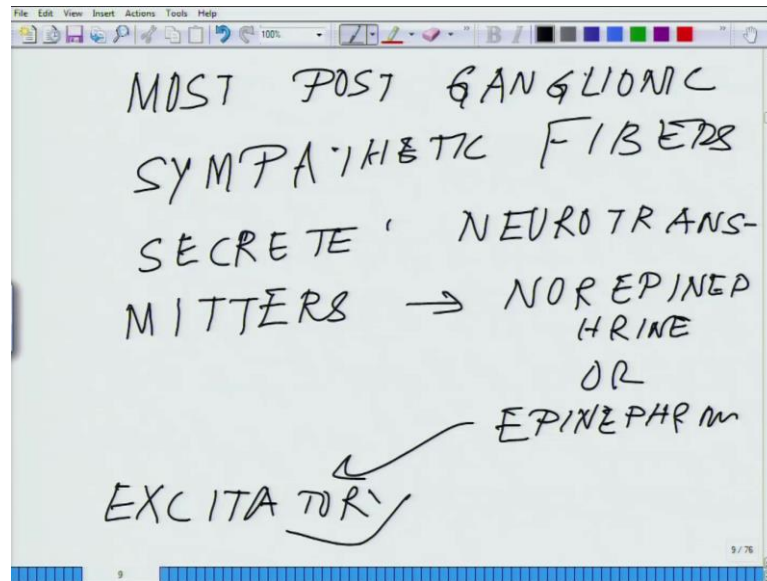 File Edit View Insert Actions Tools Help
100%
MOST POST GANGLIONIC
SYMPATHETIC FIBERS
SECRETE NEUROTRANS-
MITTERS → NOREPINEP
HRINE
OR
EPINEPHRIN
EXCITATORY
9 / 76
9